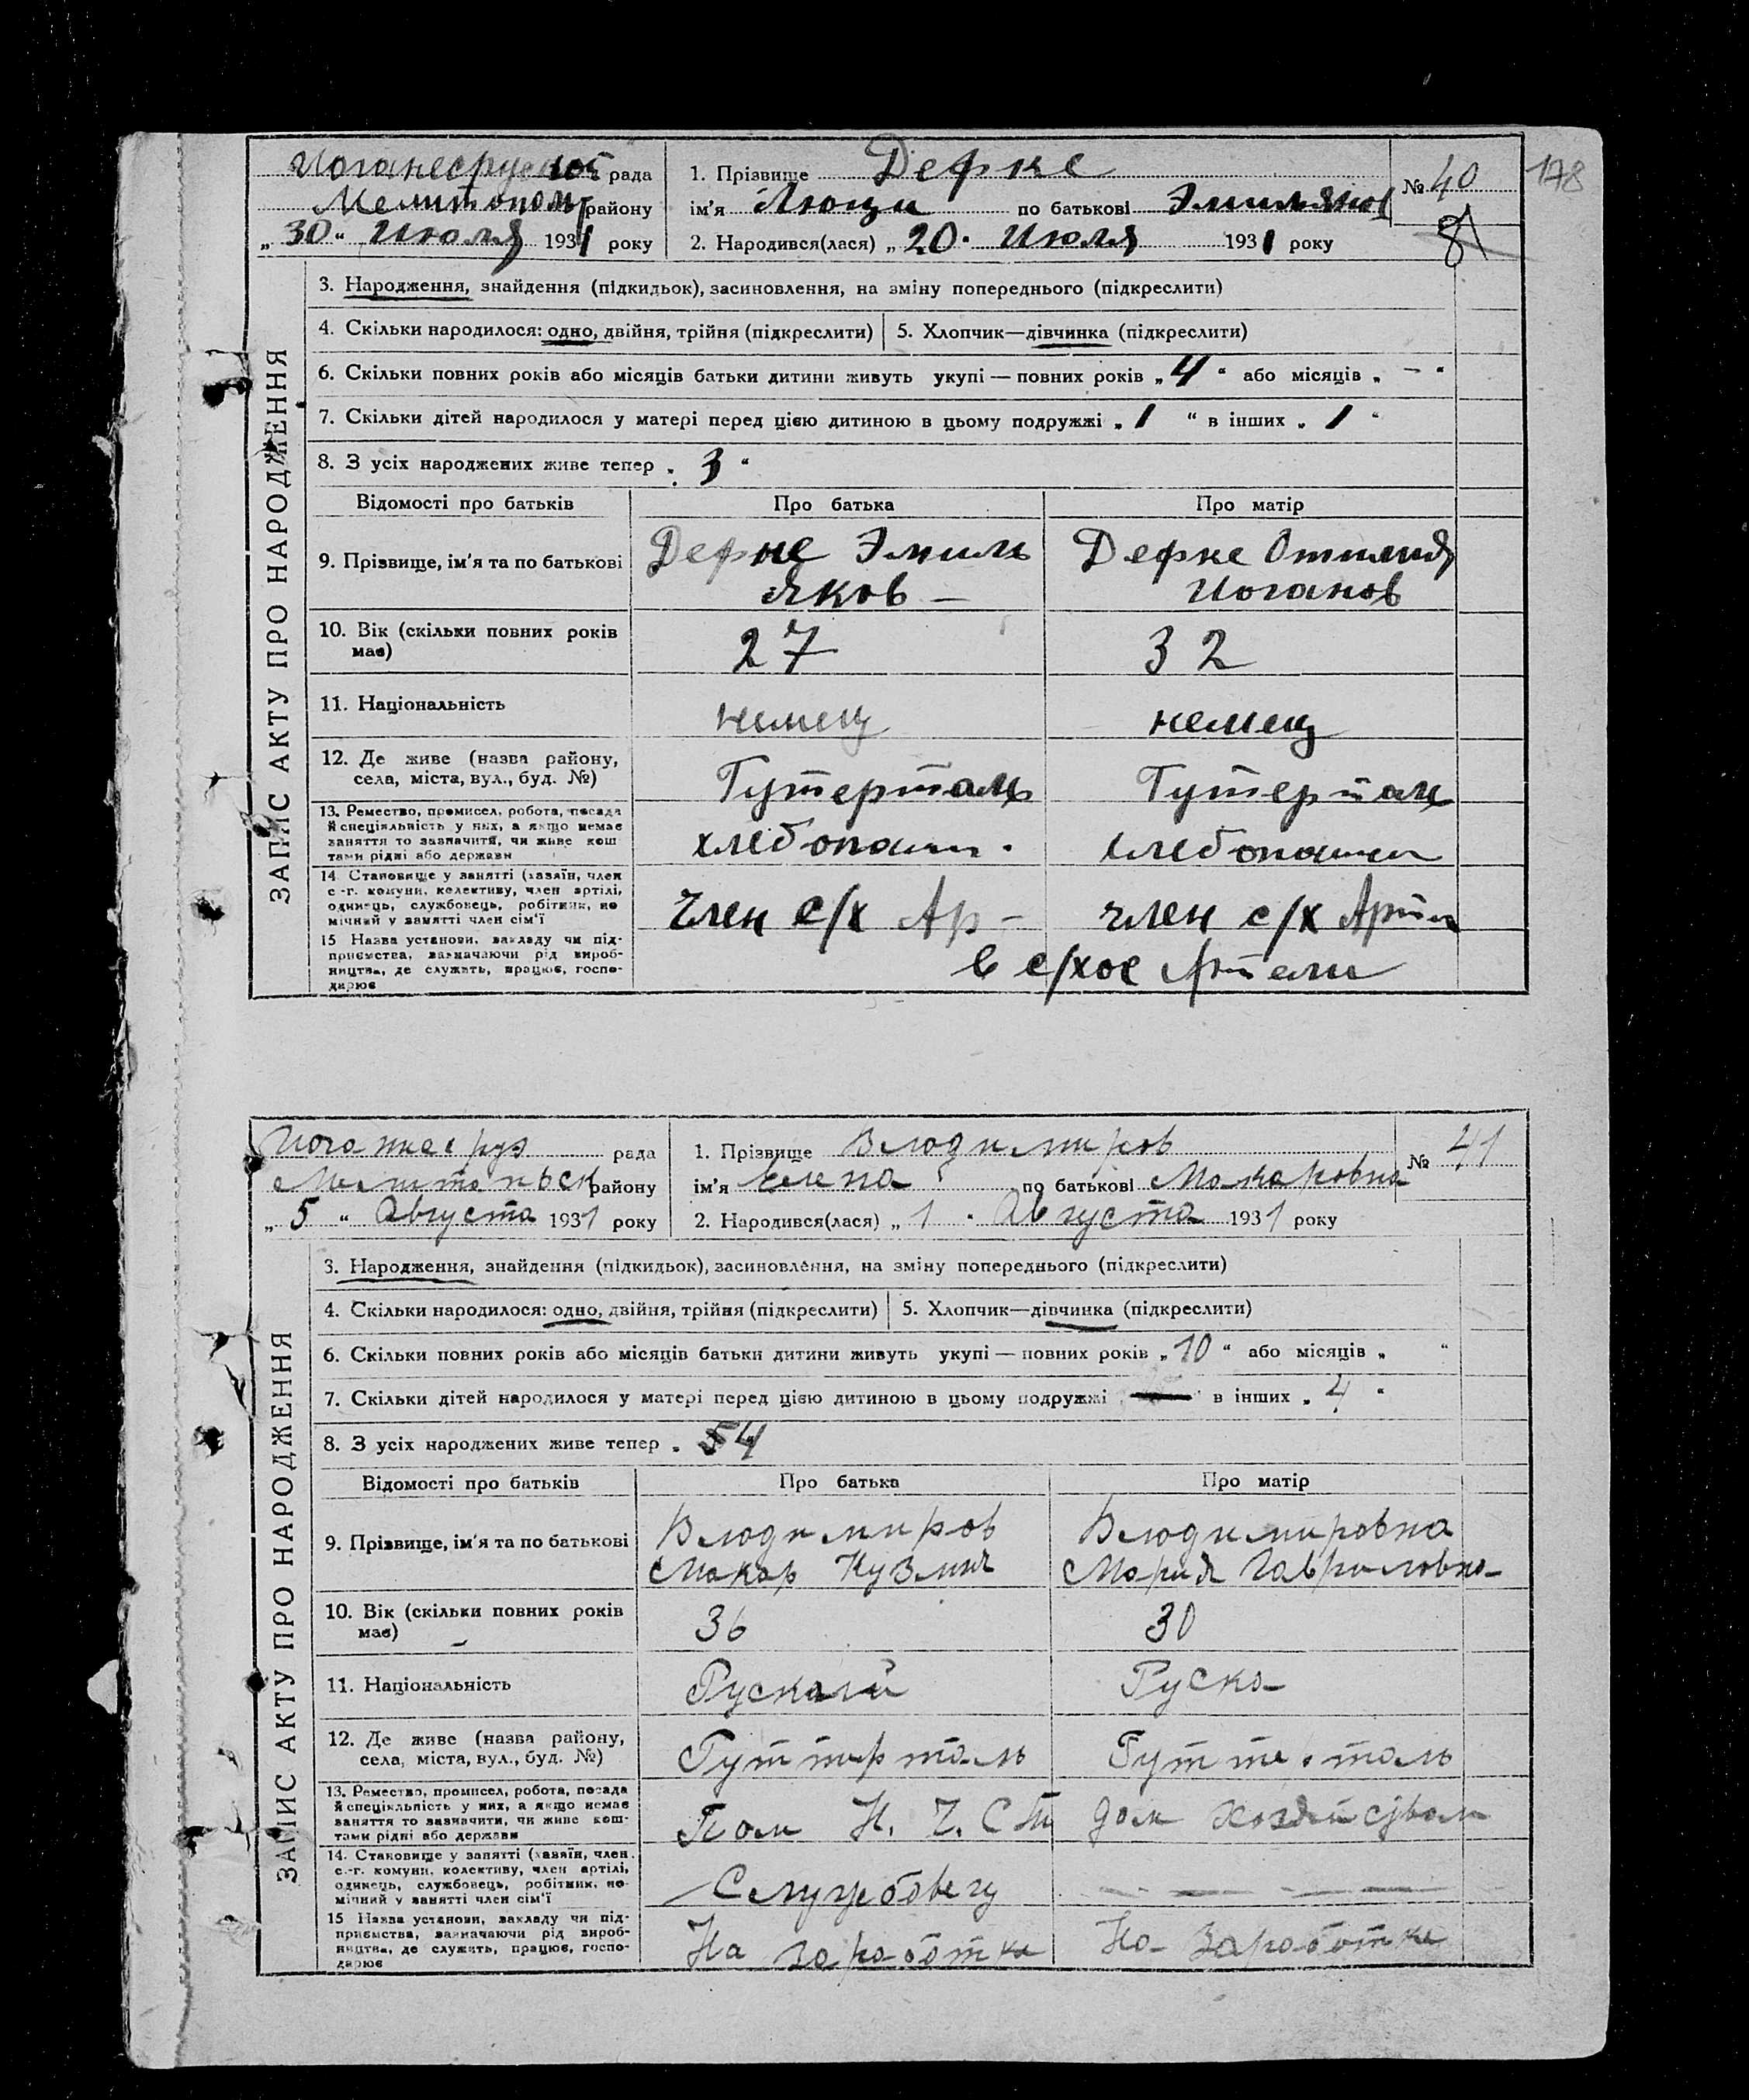 178
Иоганесруской рада
Мелитополь району
„30“ Июля 1931 року
1. Прізвище Дефке
ім'я Люци по батькові Эмильянов
2. Народився(лася) „20“ Июля 1931 року
№ 40
81
ЗАПИС АКТУ ПРО НАРОДЖЕННЯ
3. Народження, знайдення (підкидьок), засиновлення, на зміну попереднього (підкреслити)
4. Скільки народилося: одно, двійня, трійня (підкреслити) 5. Хлопчик—дівчинка (підкреслити)
6. Скільки повних років або місяців батьки дитини живуть укупі — повних років „4“ або місяців „—“
7. Скільки дітей народилося у матері перед цією дитиною в цьому подружжі „1“ в інших „1“
8. З усіх народжених живе тепер „3“
Відомості про батьків Про батька Про матір
9. Прізвище, ім'я та по батькові Дефке Эмиль Дефке Оттилия
Яков — Иоганов
10. Вік (скільки повних років 27 32
має)
11. Національність немец немец
12. Де живе (назва району, Гутерталь Гутерталь
села, міста, вул., буд. №)
13. Ремество, промисел, робота, посада хлебопаш. хлебопаш
й спеціяльність у них, а якщо немає
заняття то зазначити, чи живе кош
тами рідні або держави
14 Становище у занятті (хазяїн, член Член с/х Ар— член с/х Артел
с.-г. комуни, колективу, член артілі,
одинець, службовець, робітник, по
мічний у занятті член сім'ї
15 Назва установи, закладу чи під- в с/хое Артели
приємства, зазначаючи рід вироб-
ництва, де служить, працює, госпо-
дарює
Иоганесруз рада
Мелитопьск району
„5“ Августа 1931 року
1. Прізвище Влодимиров
ім'я Елена по батькові Макаровна
2. Народився(лася) „1“ Августа 1931 року
№ 41
ЗАПИС АКТУ ПРО НАРОДЖЕННЯ
3. Народження, знайдення (підкидьок), засиновлення, на зміну попереднього (підкреслити)
4. Скільки народилося: одно, двійня, трійня (підкреслити) 5. Хлопчик—дівчинка (підкреслити)
6. Скільки повних років або місяців батьки дитини живуть укупі — повних років „10“ або місяців „ “
7. Скільки дітей народилося у матері перед цією дитиною в цьому подружжі в інших „4“
8. З усіх народжених живе тепер „54
Відомості про батьків Про батька Про матір
9. Прізвище, ім'я та по батькові Влодимиров Влодимировна
Макар Кузмич Мария Гавриловна
10. Вік (скільки повних років 36 30
має)
11. Національність Руский Руска
12. Де живе (назва району, Гуттирталь Гуттерталь
села, міста, вул., буд. №)
13. Ремество, промисел, робота, посада Пом Н. Ч. Ст дом хозяйством
й спеціяльність у них, а якщо немає
заняття то зазначити, чи живе кош-
тами рідні або держави
14. Становище у занятті (хазяїн, член Службовец
с.-г. комуни, колективу, член артілі,
одинець, службовець, робітник, по
мічний у занятті член сім'ї
15 Назва установи, закладу чи під- На заработке На заработке
приємства, зазначаючи рід вироб-
ництва, де служить, працює, госпо-
дарює